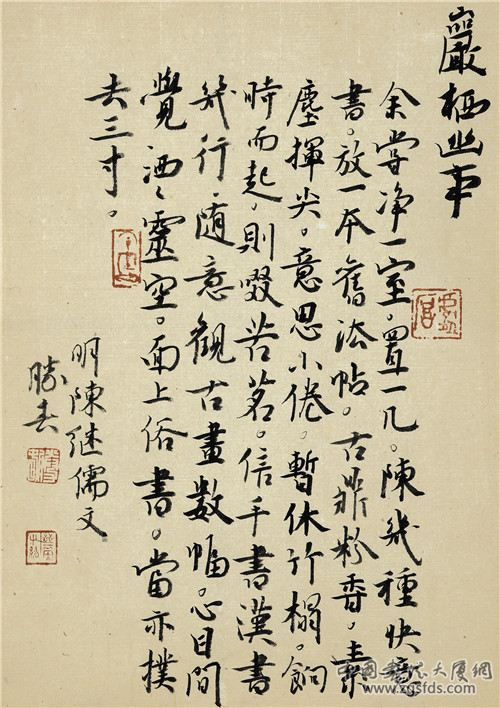 巖栖幽事
余嘗净一室。置一几。陳幾種快意
書。放一本舊法帖。古鼎粉香。素
塵揮尖。意思小倦。暫休竹榻。餉
時而起。則啜苦茗。信手書漢書
幾行。随意觀古畫數幅。心目間
覺洒々靈空。面上俗書。當亦撲
去三寸。
明陳继儒文
中国书法大厦网
www.zgsfds.com